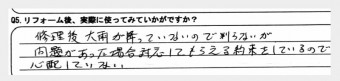 Q5. リフォーム後、実際に使ってみていかがですか?
修理後大雨が降っていないので判らないが
問題があった場合対応してもらえる約束をしているので
心配していない。